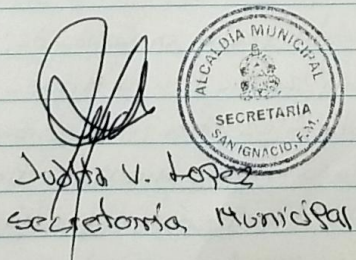 ALCALDÍA MUNICIPAL
SECRETARÍA
SAN IGNACIO, F.M.
Judta V. Lopez
secretaria Municipal